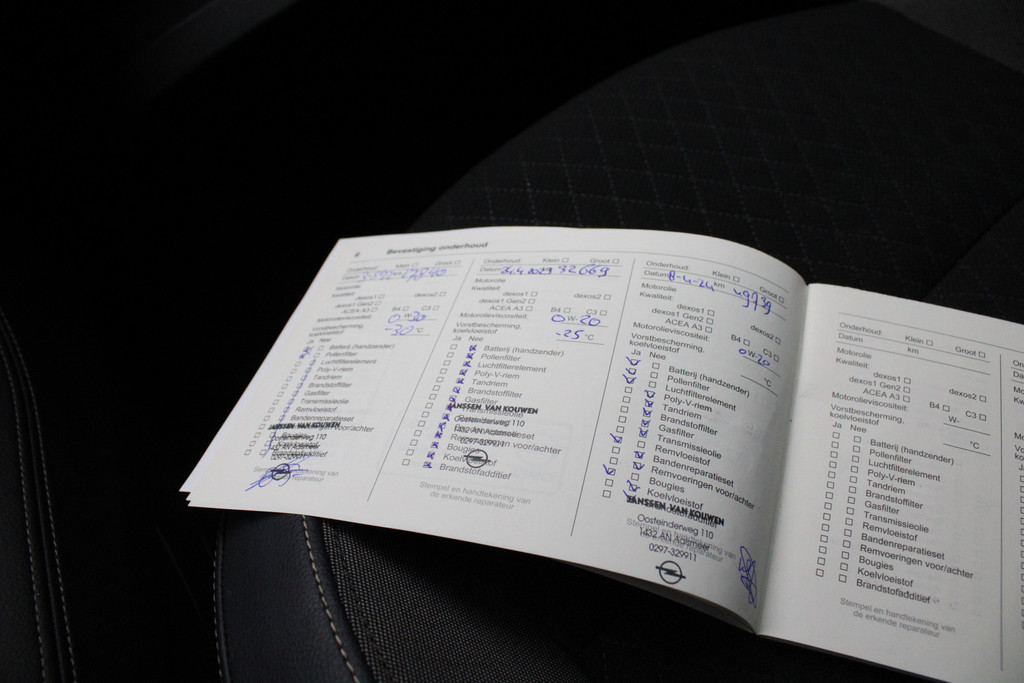 6 Bevestiging onderhoud
Onderhoud: Klein Groot
Datum km
Motorolie
Kwaliteit:
dexos1 dexos2
dexos1 Gen2
ACEA A3 B4 C3
Motorolieviscositeit: 0 W- 30
Vorstbescherming,
koelvloeistof -30 °C
Ja Nee
Batterij (handzender)
Pollenfilter
Luchtfilterelement
Poly-V-riem
Tandriem
Brandstoffilter
Gasfilter
Transmissieolie
Remvloeistof
Bandenreparatieset
JANSSEN VAN KOUWEN
Oosteinderweg 110
1432 AN Aalsmeer
0297-329911
Stempel en handtekening van
de erkende reparateur
Onderhoud: Klein Groot
Datum 24.4.2023 32669
Motorolie
Kwaliteit:
dexos1 dexos2
dexos1 Gen2
ACEA A3 B4 C3
Motorolieviscositeit: 0 W- 20
Vorstbescherming,
koelvloeistof -25 °C
Ja Nee
Batterij (handzender)
Pollenfilter
Luchtfilterelement
Poly-V-riem
Tandriem
Brandstoffilter
Gasfilter
Transmissieolie
JANSSEN VAN KOUWEN
Oosteinderweg 110
1432 AN Aalsmeer
0297-329911
Bougies
Koelvloeistof
Brandstofadditief
Stempel en handtekening van
de erkende reparateur
Onderhoud: Klein Groot
Datum 8-4-24 km 49739
Motorolie
Kwaliteit:
dexos1 dexos2
dexos1 Gen2
ACEA A3 B4 C3
Motorolieviscositeit: 0 W- 20
Vorstbescherming,
koelvloeistof °C
Ja Nee
Batterij (handzender)
Pollenfilter
Luchtfilterelement
Poly-V-riem
Tandriem
Brandstoffilter
Gasfilter
Transmissieolie
Remvloeistof
Bandenreparatieset
Remvoeringen voor/achter
Bougies
Koelvloeistof
Brandstofadditief
JANSSEN VAN KOUWEN
Oosteinderweg 110
1432 AN Aalsmeer
0297-329911
Stempel en handtekening van
Onderhoud: Klein Groot
Datum km
Motorolie
Kwaliteit:
dexos1 dexos2
dexos1 Gen2
ACEA A3 B4 C3
Motorolieviscositeit: W-
Vorstbescherming,
koelvloeistof °C
Ja Nee
Batterij (handzender)
Pollenfilter
Luchtfilterelement
Poly-V-riem
Tandriem
Brandstoffilter
Gasfilter
Transmissieolie
Remvloeistof
Bandenreparatieset
Remvoeringen voor/achter
Bougies
Koelvloeistof
Brandstofadditief
Stempel en handtekening van
de erkende reparateur